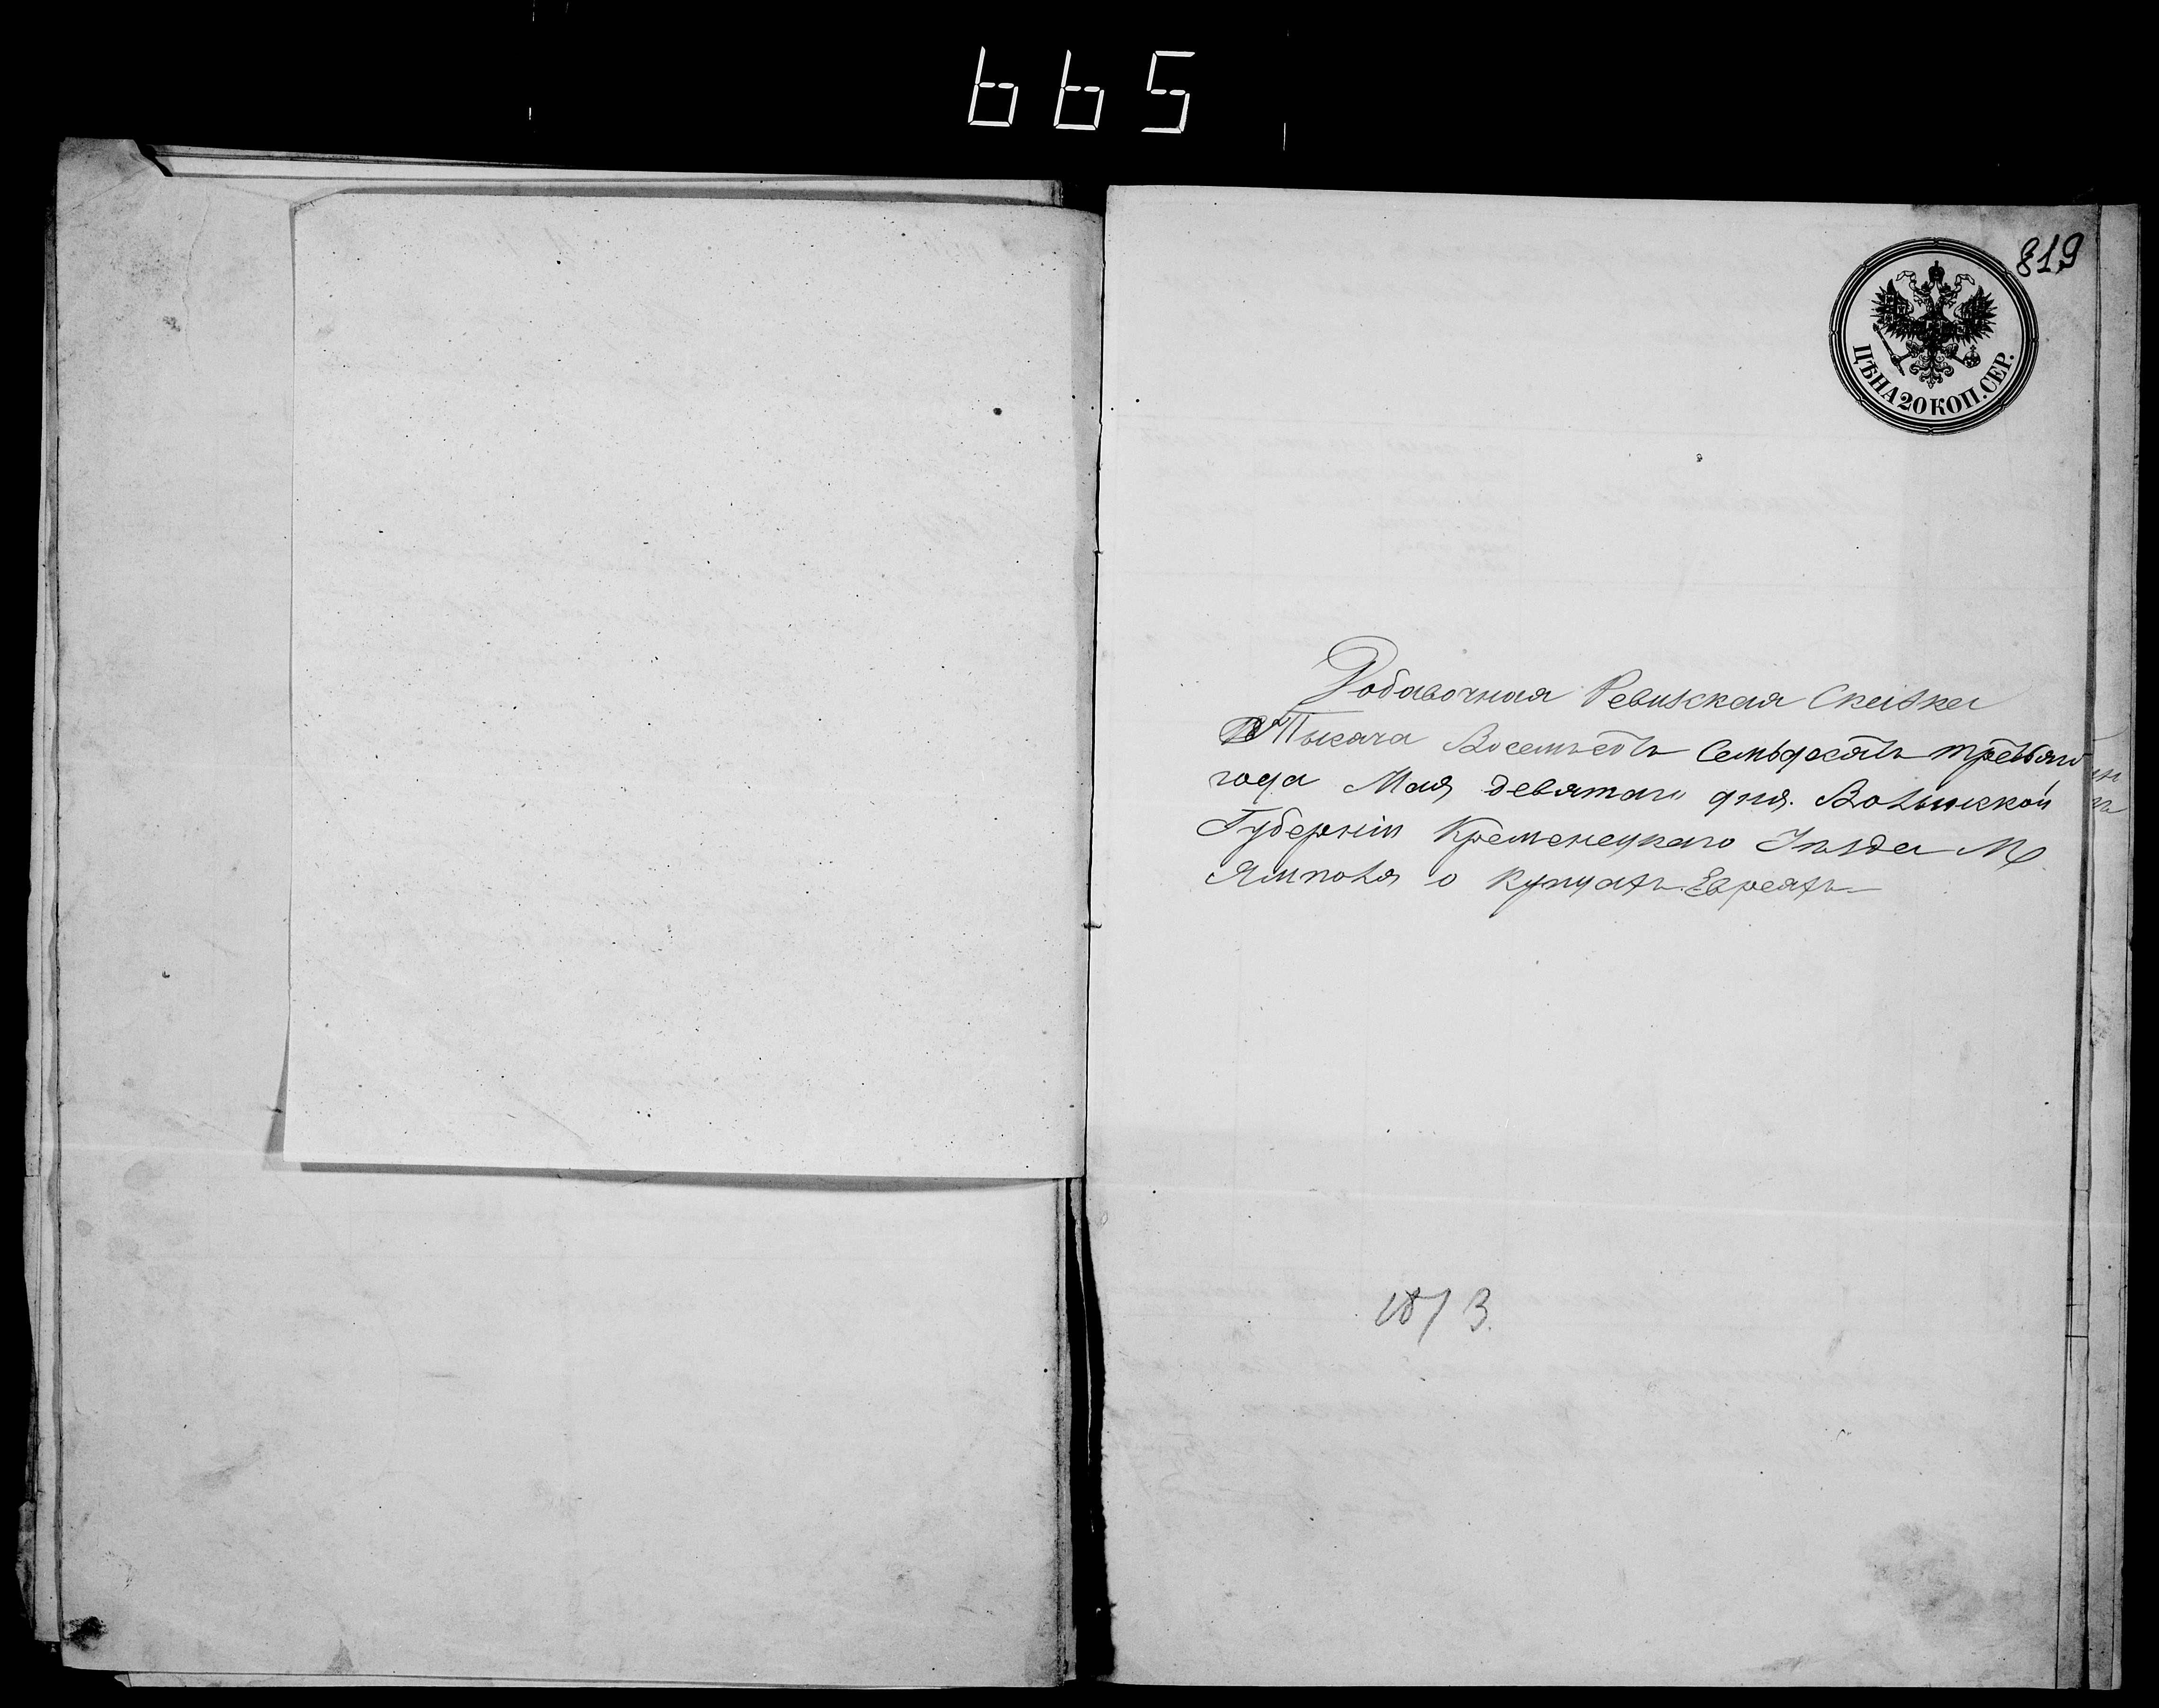 665
819
ЦѢНА 20 КОП. СЕР.
Добавочная Ревизская Сказка
Тысяча Восемьсотъ Семьдесятъ третьяго
года Мая девятаго дня. Волынской
Губерніи Кременецкаго Уѣзда М
Ямполя о купцахъ Евреяхъ
1873.